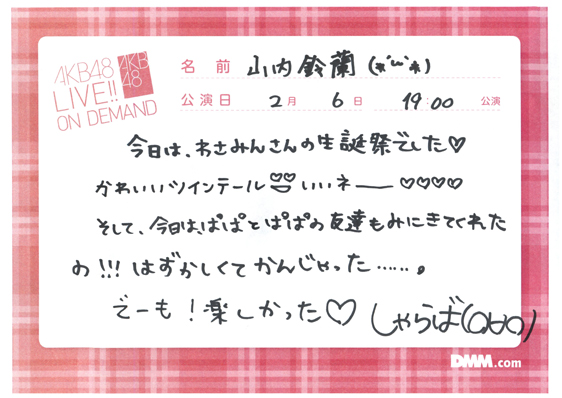 AKB48
LIVE!!
ON DEMAND
AKB
48
名 前 山内鈴蘭(*´`*)
公演日 2月 6日 19:00 公演
今日は、わさみんさんの生誕祭でした♡
かわいいツインテール いいネー ♡♡♡♡
そして、今日は、ぱぱとぱぱの友達もみにきてくれた
の!!!はずかしくてかんじゃった……。
でーも!楽しかった♡ しゃらば(OヨO)
DMM.com